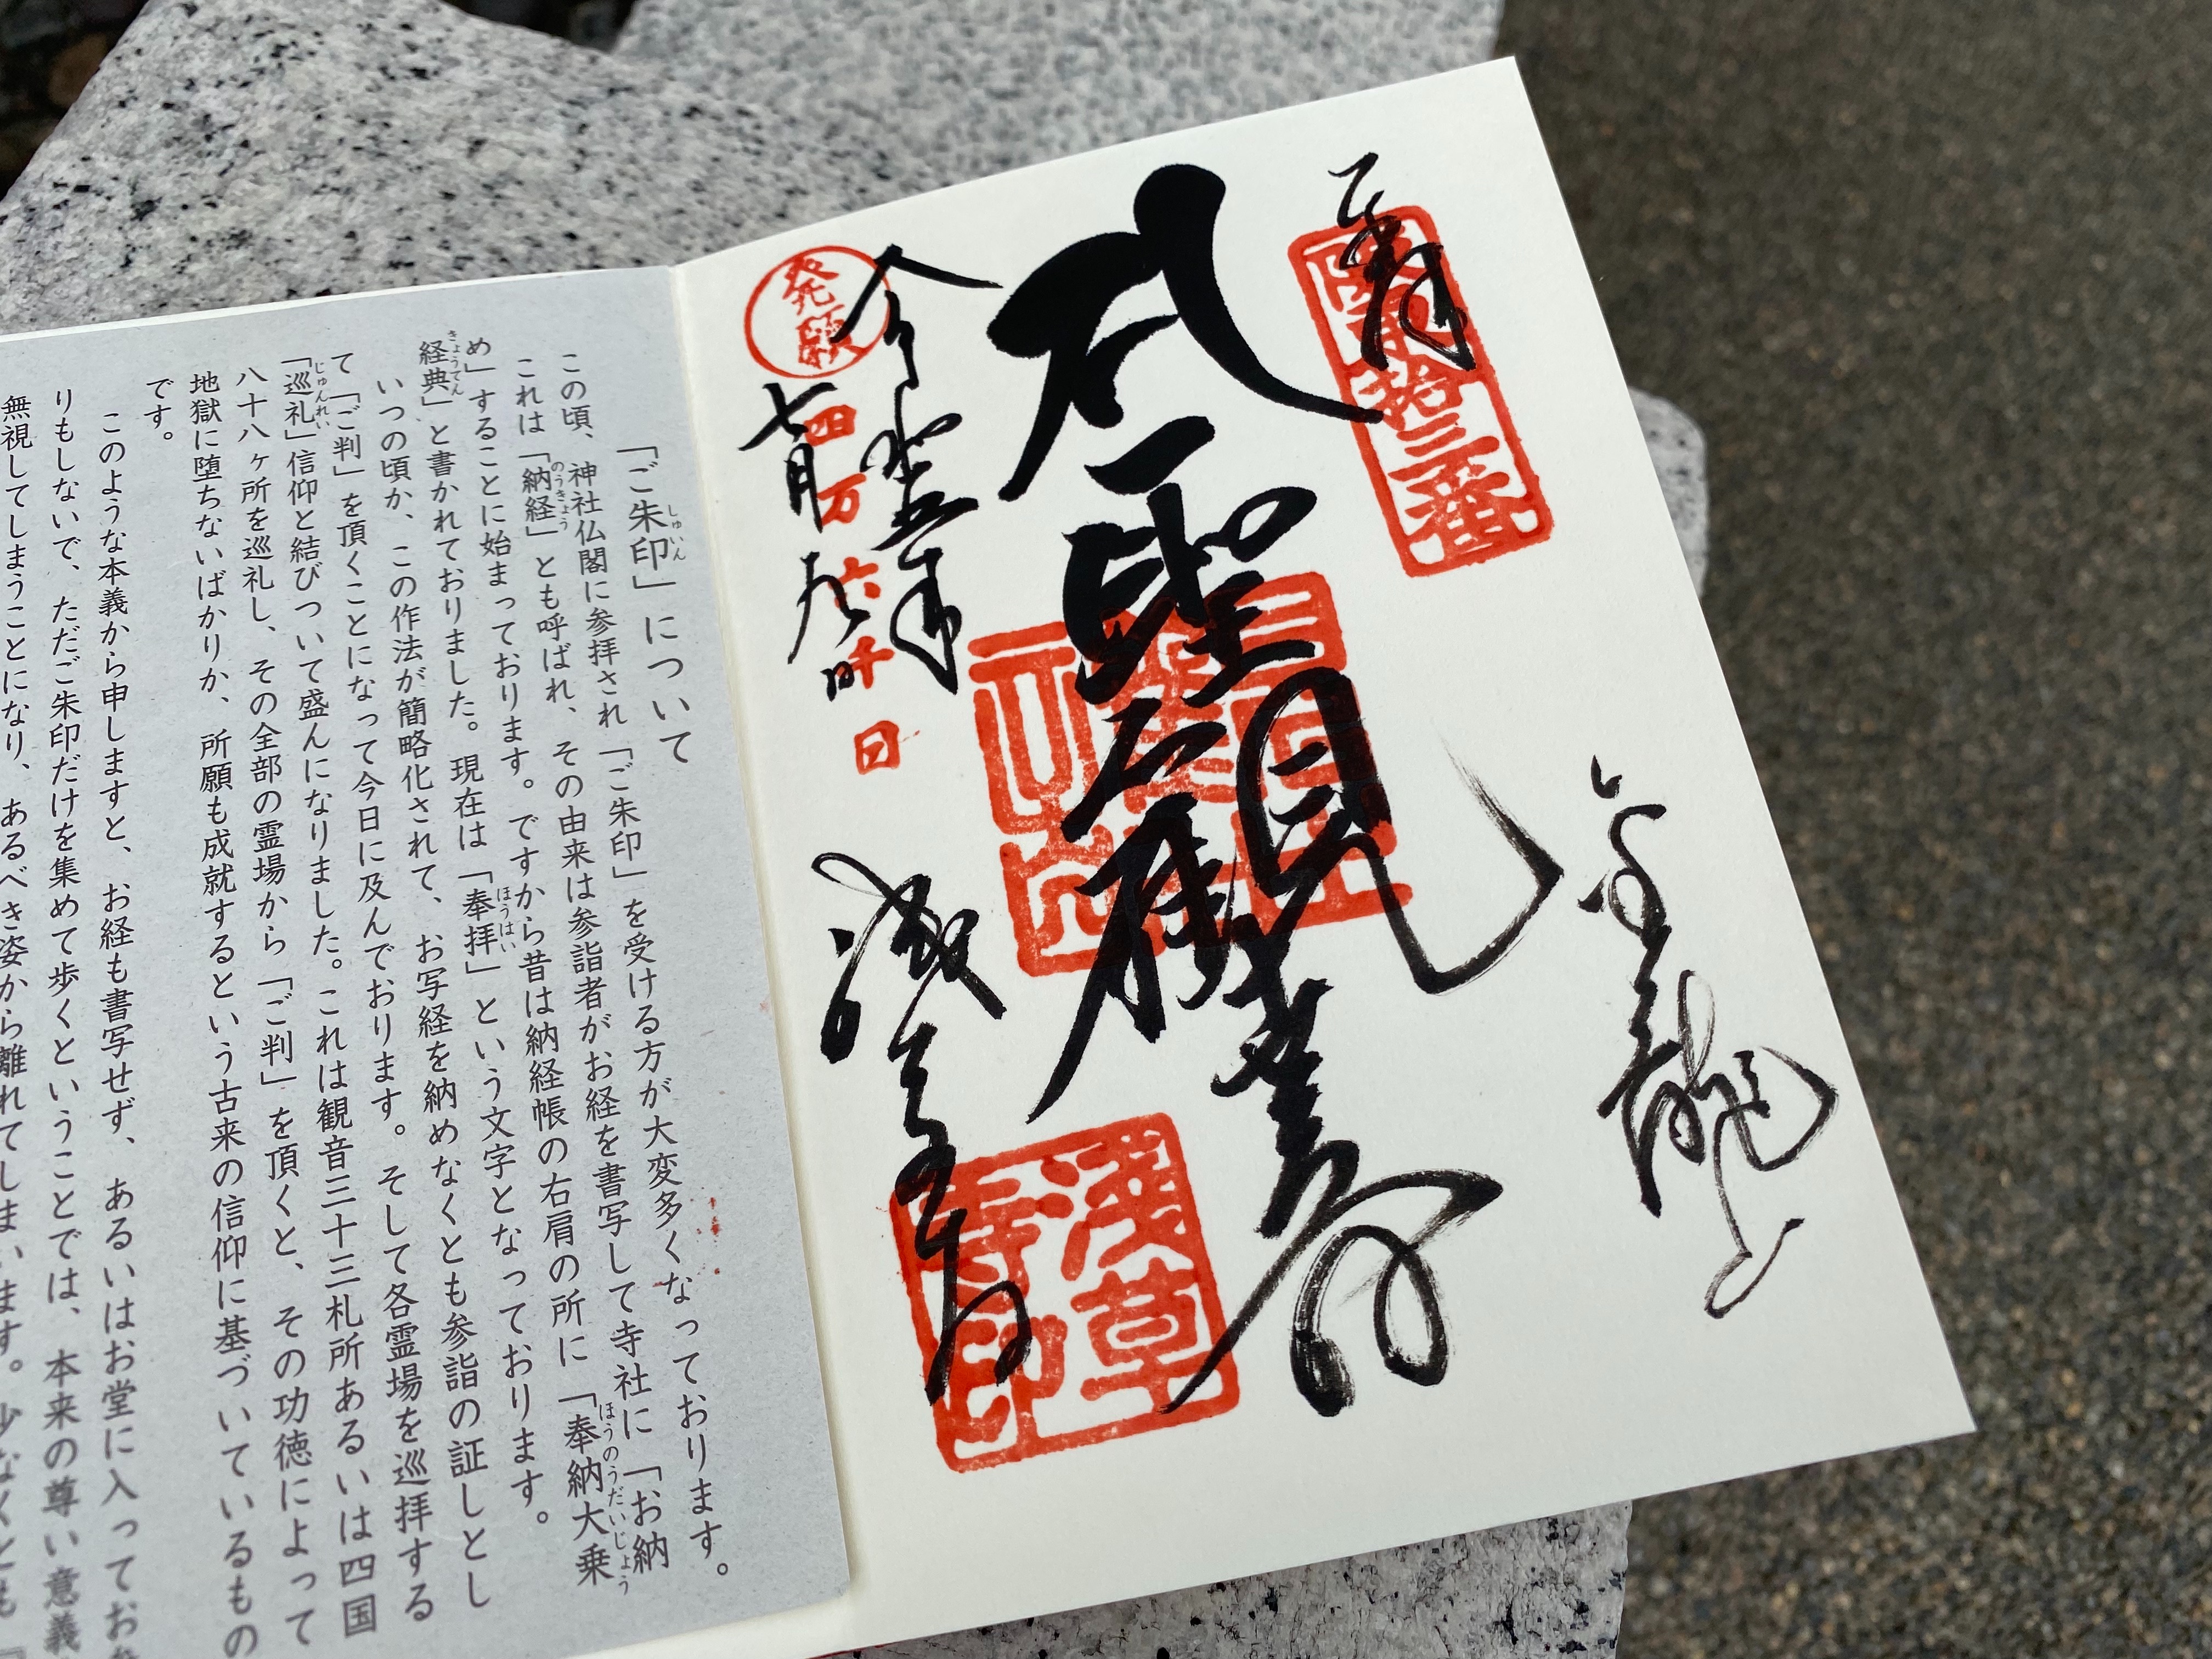 奉拝
坂東拾三番
金龍山
聖観世音
浅草寺印
令和五年
七月九日
発願
四万六千日
浅草寺
「ご朱印」について
この頃、神社仏閣に参拝され「ご朱印」を受ける方が大変多くなっております。
これは「納経」とも呼ばれ、その由来は参詣者がお経を書写して寺社に「お納
め」することに始まっております。ですから昔は納経帳の右肩の所に「奉納大乗
経典」と書かれておりました。現在は「奉拝」という文字となっております。
いつの頃か、この作法が簡略化されて、お写経を納めなくとも参詣の証しとし
て「ご判」を頂くことになって今日に及んでおります。そして各霊場を巡拝する
「巡礼」信仰と結びついて盛んになりました。これは観音三十三札所あるいは四国
八十八ヶ所を巡礼し、その全部の霊場から「ご判」を頂くと、その功徳によって
地獄に堕ちないばかりか、所願も成就するという古来の信仰に基づいているもの
です。
このような本義から申しますと、お経も書写せず、あるいはお堂に入ってお参
りもしないで、ただご朱印だけを集めて歩くということでは、本来の尊い意義
無視してしまうことになり、あるべき姿から離れてしまいます。少なくとも